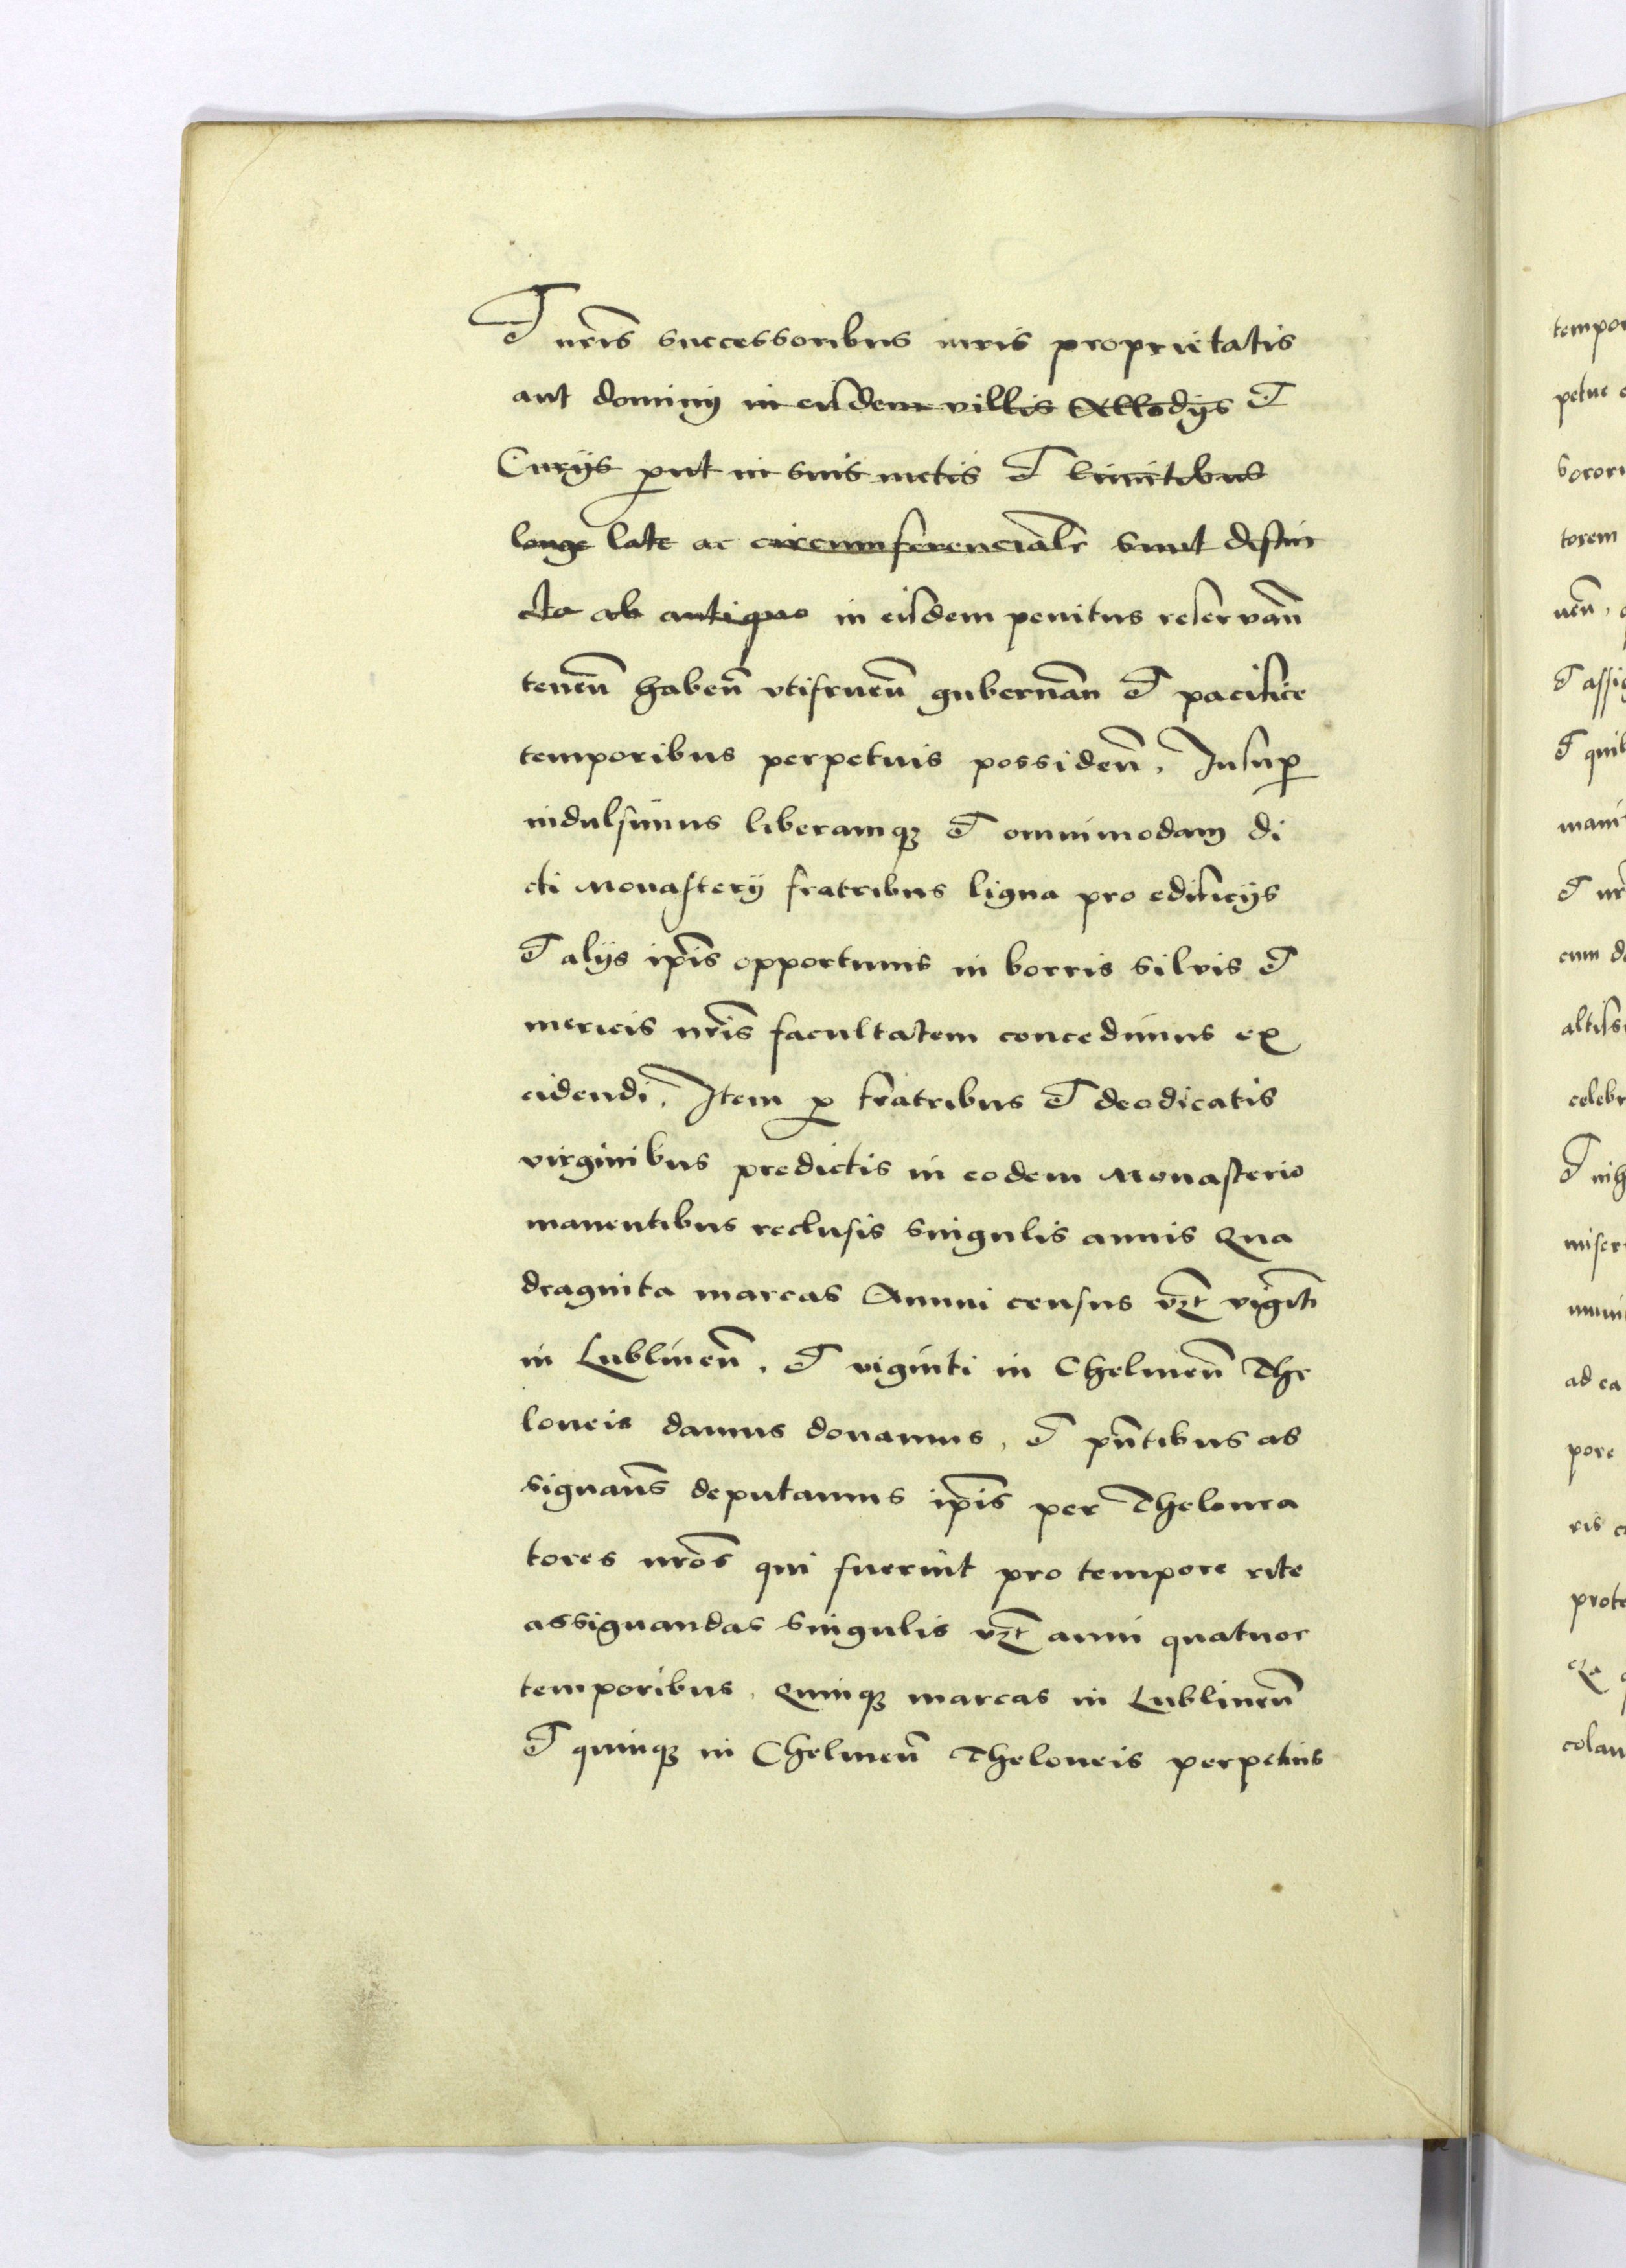 Et nrīs successoribus iuris proprietatis
aut dominij in eisdem villis Allodijs Et
Curijs put in suis metis Et limitibus
longe late ac circumferencialr sunt distin
cta ab antiquo in eisdem penitus reservan̄
tenen̄ haben̄ vtifruen̄ gubernan̄ Et pacifice
temporibus perpetuis possiden̄, Insup
indulsimus liberamq3 Et omnimodam di
cti Monasterij fratribus ligna pro edificijs
Et alijs ipīs opportunis in borris silvis Et
mericis nrīs facultatem concedimus ex
cidendi, Item p fratribus Et deodicatis
virginibus predictis in eodem Monasterio
manentibus reclusis singulis annis Qua
draginta marcas Annui census vz̄t viginti
in Lublinen̄, Et viginti in Chelmen̄ The
loneis damus donamus, Et pn̄tibus as
signan̄s deputamus ipīs per Thelonea
tores nrōs qui fuerint pro tempore rite
assignandas singulis vz̄t anni quatuor
temporibus, Quinq3 marcas in Lublinen̄
Et quinq3 in Chelmen̄ Theloneis perpetuis